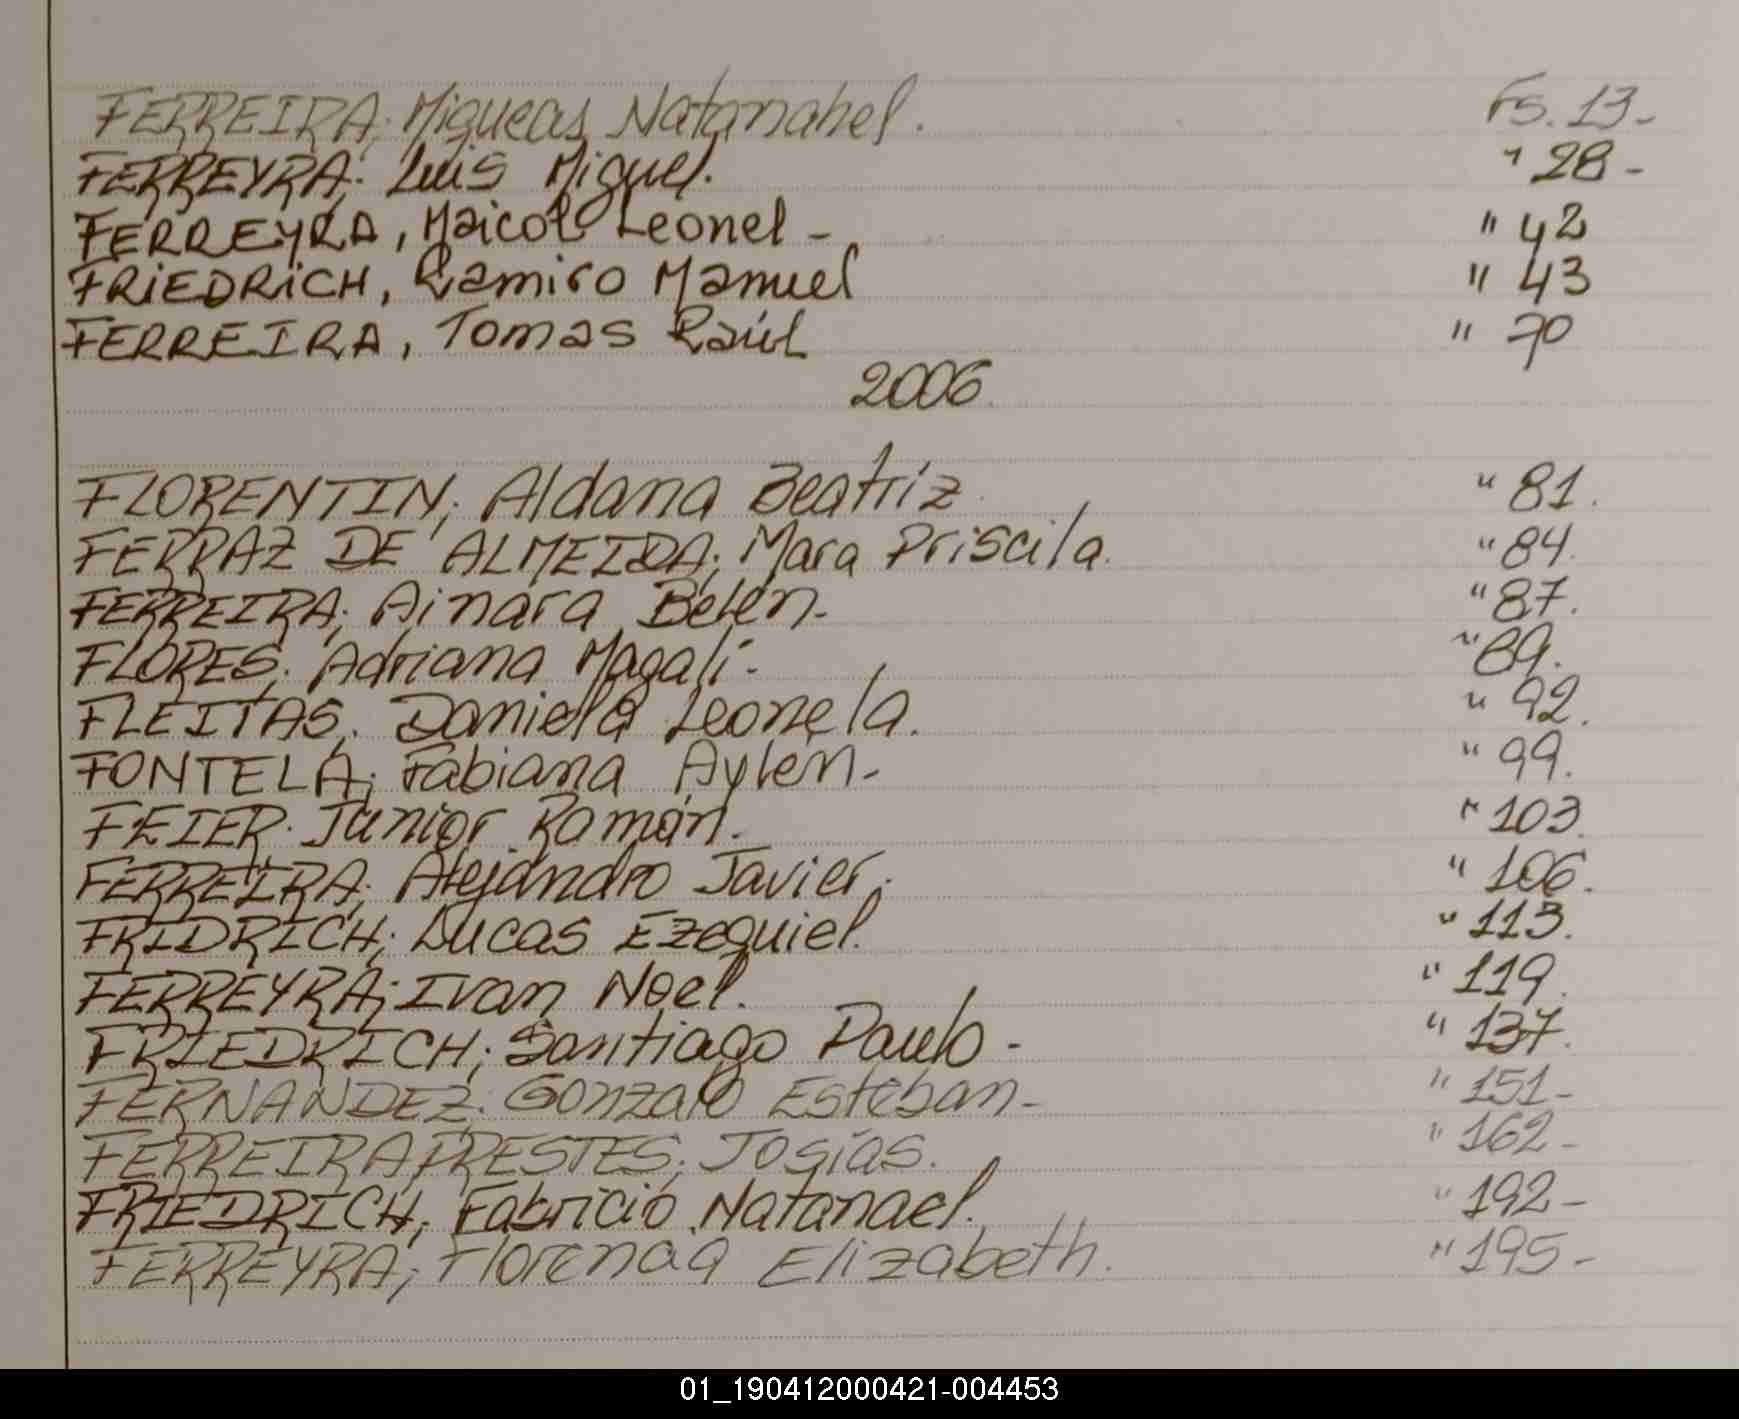 FERREIRA; Miqueas Natanahel. Fs. 13-
FERREYRA; Luis Miguel. " 28-
FERREYRA, Maicol Leonel - " 42
FRiEDRiCH, Ramiro Manuel " 43
FERREIRA, Tomas Raúl " 70
2006.
FLORENTIN; Aldana Beatriz " 81.
FERRAZ DE ALMEIDA; Mara Priscila. " 84.
FERREIRA; Ainara Belén- " 87.
FLORES; Adriana Magalí- " 89.
FLEITAS; Daniela Leonela. " 92.
FONTELA; Fabiana Aylén- " 99.
FEIER; Junior Román. " 103.
FERREIRA; Alejandro Javier. " 106.
FRIDRICH; Lucas Ezequiel. " 113.
FERREYRA; Ivan Noel. " 119.
FRIEDRICH; Santiago Paulo- " 137.
FERNANDEZ; Gonzalo Esteban- " 151-
FERREIRA PRESTES; Josías. " 162-
FRIEDRICH; Fabricio Natanael. " 192-
FERREYRA; Elizabeth. " 195-
01_190412000421-004453